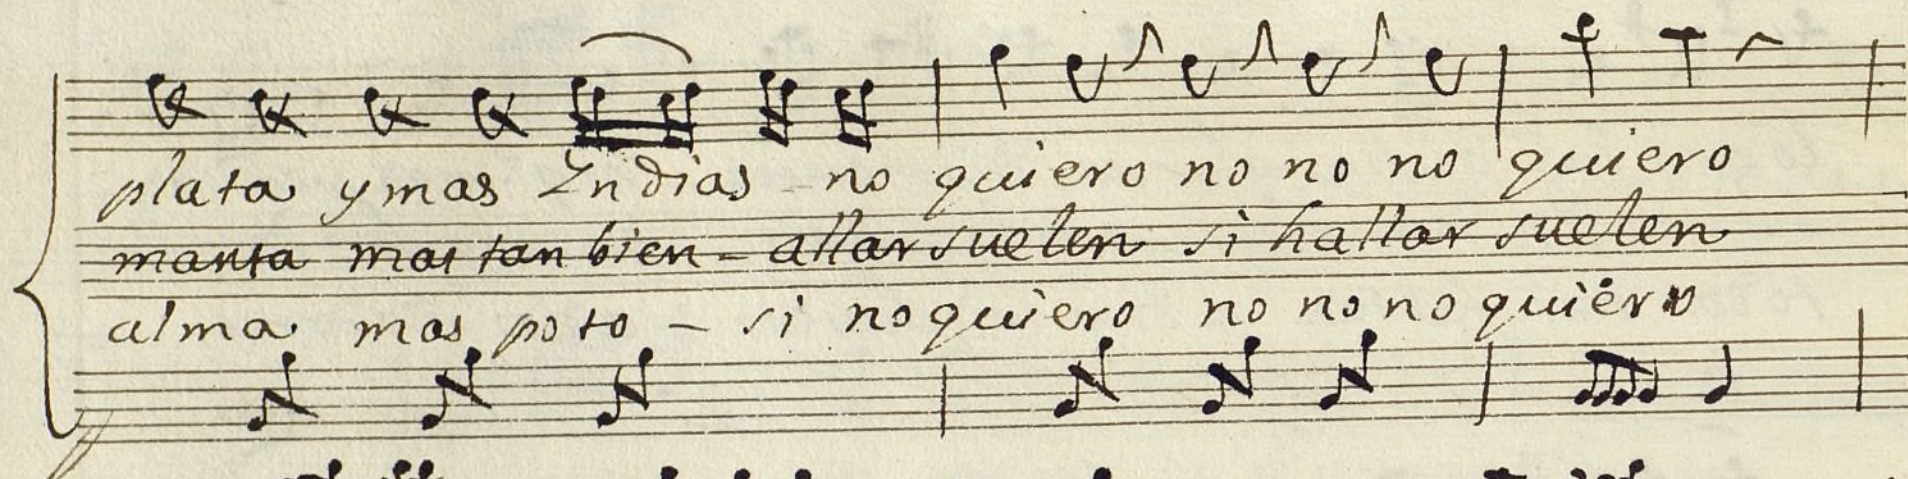 plata y mas Indias - no quiero no no no quiero
manta mas tan bien - allar suelen si hallar suelen
alma mas poto - si no quiero no no no quiero